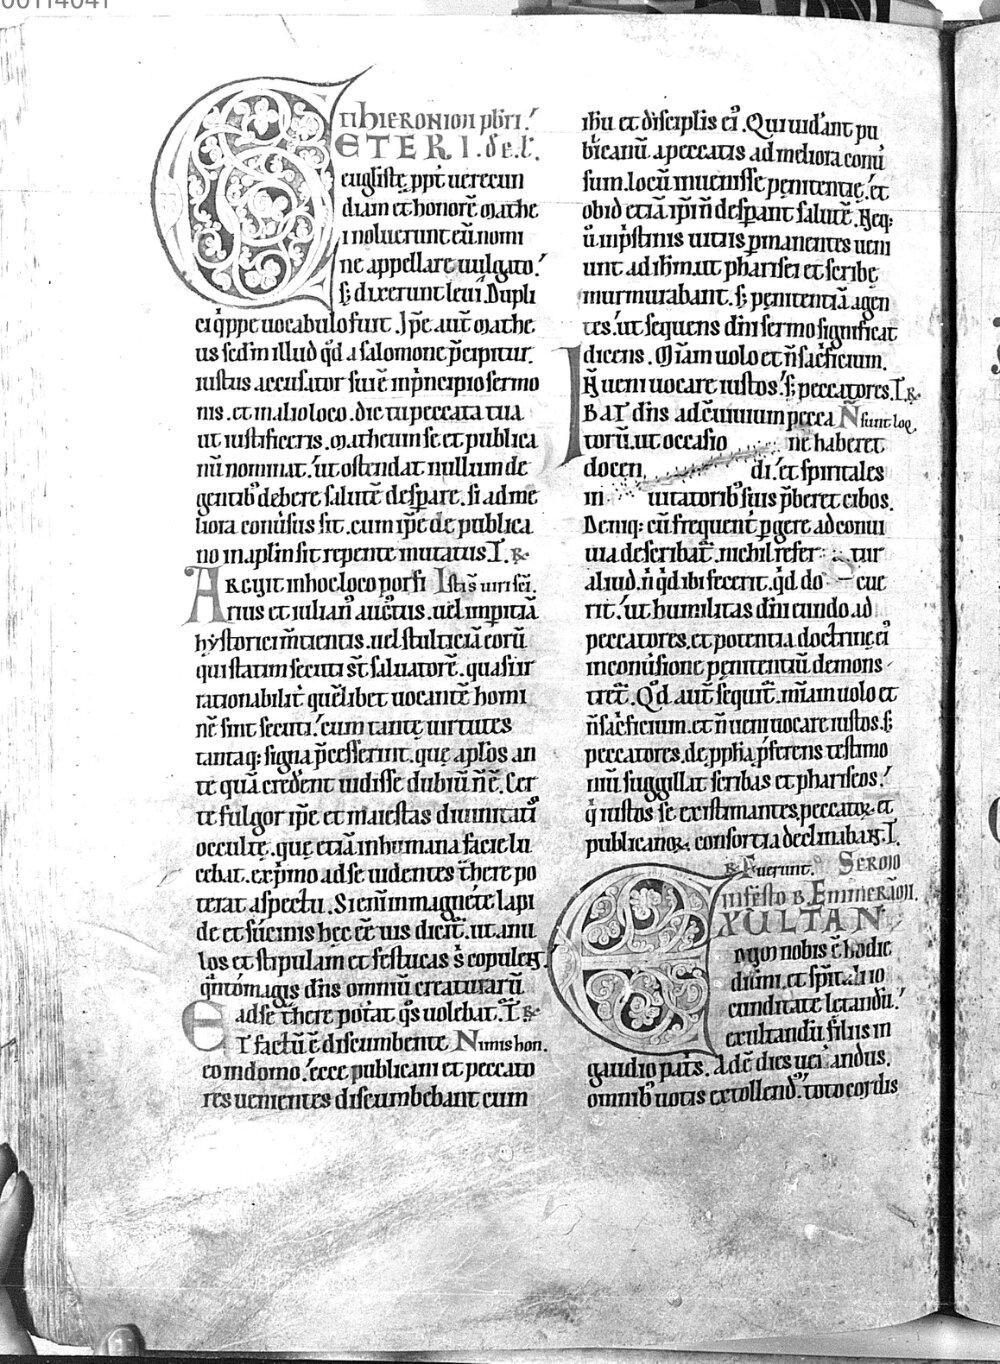 00114041
ti hieronioni pbri.
CETERI.de.l.
euglistę ppt uerecun
diam et honorē mathe
i noluerunt eū nomi
ne appellare uulgato.
s; dixerunt leui. Dupli
ci q̇ppe uocabulo fuit. Ipe aut mathe
us sedm illud qd a salomone p̄cipitur.
iustus accusator sui ē in p̄ncipio sermo
nis. et in alio loco. dic tu peccata tua
ut iustificeris. matheum se et publica
nū nominat. ut ostendat nullum de
gentib; debere salutē despare. si ad me
liora conūsus sit. cum ipe de publica
no in aplm sit repente mutatus I. R.
ARGUIT in hoc loco porfi Isti s̄ uiri sci.
rius et iulian; auctus. uel impitiā
hystorici mentientis. uel stulticiā eorū
qui statim secuti st saluatorē. quasi ir
rationabilit quēlibet uocantē homi
nē sint secuti. cum tantę uirtutes
tantaq; signa p̄cesserint. quę aplos an
te quā crederent uidisse dubiū n̄ ē. Cer
te fulgor ipe et maiestas diuinitati
occultę. quę etiā in humana facie lu
cebat. ex p̄mo ad se uidentes t̄here po
terat aspectu. Si enī in magnete lapi
de et sucinis hec eē uis dicit. ut anu
los et stipulam et festucas s̄ copulet.
q̄nto magis dns omniū creaturarū
ad se t̄here poterat q̇s uolebat. I R.
Et factū ē discumbente Nunis hon.
eo in domo. ecce publicani et peccato
res uenientes discumbebant cum
ihu et discipłis ei. Qui uidant pu
blicanū. a peccatis ad meliora conū
sum. locū inuenisse penitentię. et
ob id etiā ipi n̄ despant salutē. Neq;
ū in p̄stinis uitiis pmanentes ueni
unt ad ihm. ut pharisei et scribę
murmurabant. s; penitentiā agen
tes. ut sequens dni sermo significat
dicens. Miam uolo et n̄ sacficium.
N̄ ueni uocare iustos. s; peccatores. I R.
IBAT dns ad cuiuium pecca N̄ sunt loq.
torū. ut occasio ne haberet
docen di. et spiritales
in uitatorib; suis p̄beret cibos.
Deniq; cū frequent pgere ad conui
uia describat. nichil refer tur
aliud. n̄ qd ibi fecerit. qd do cue
rit. ut humilitas dni eundo ad
peccatores. et potentia doctrine ei
in conūsione penitentiū demons
tret. Qd aut sequit. miam uolo et
n̄ sacficium. et n̄ ueni uocare iustos. s;
peccatores. de pphia pferens testimo
niū suggillat scribas et phariseos.
q̇ iustos se existimantes, peccatorꝝ et
publicanorꝝ consortia declinabant. I.
R. Fuerunt. SERMO
in festo B. Emmerāmi.
EXULTAN
dum nobis ē hodie
diuini. et spitali io
cunditate letandū.
exultandū filiis in
gaudio patris. Adē dies uenerandus.
omnib; uotis extollend. toto cordis